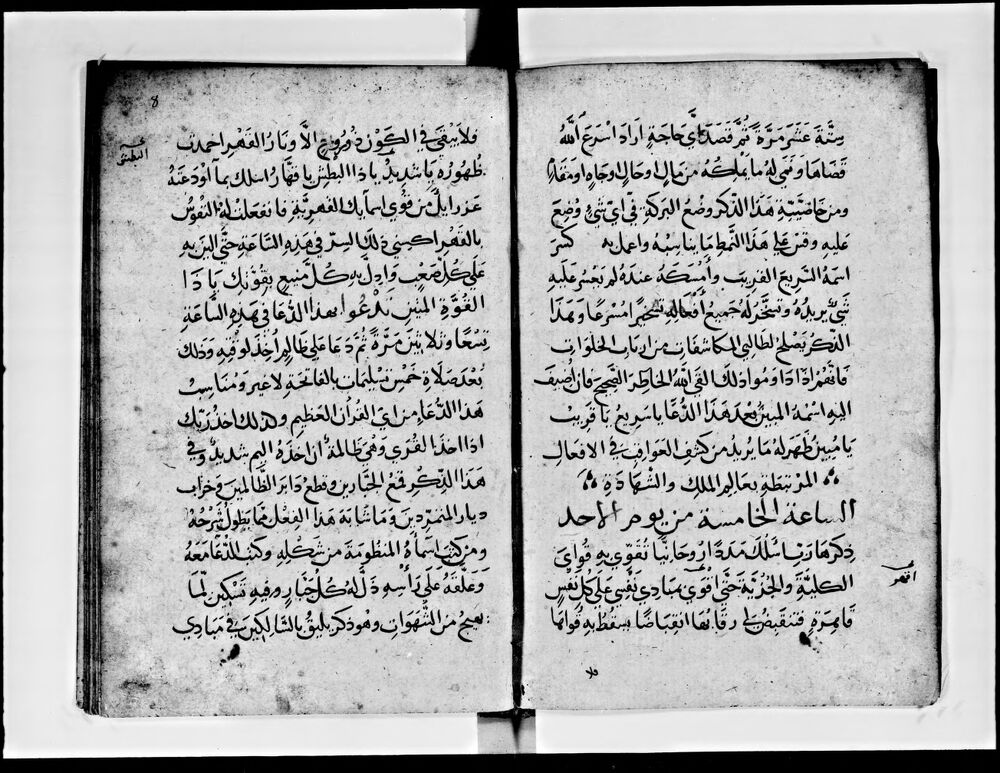 ستة عشر مرة ثم قصد اي حاجة اراد اسرع الله
قضاها ونمي له ما يملكه من مال او حال وجاه او مقام
ومن خاصية هذا الذكر وضع البركة في اي شيء وضع
عليه وقس على هذا النمط ما يناسبه واعمل به كتب
اسمه السريع القريب وأمسكه عنده لم يعسر عليه
شيء يريده وتسخر له جميع أفعاله تسخيرا مسرعا وهذا
الذكر يصلح لطالبي المكاشفات من ارباب الخلوات
فانهم اذا داوموا ذلك القي الله الخاطر الصحيح فان اضيف
اليه اسمه المبين بعد هذا الدعا يا سريع يا قريب
يا مبين ظهر له ما يريد من كشف العواقب في الافعال
المرتبطة بعالم الملك والشهادة
الساعة الخامسة من يوم الاحد
ذكرها رب اسلك مددا روحانيا تقوي به قواي
الكلية والجزية حتى اقوي بمبادي نفسي على كل نفس
قاهرة فتنقبض لي رقابها انقباضا يسقط به قواها
فلا
8
فلا يبقى في الكون ذو روح الا ونار القهر اخمدت
البطش
ظهوره يا شديد يا ذا البطش يا قهار اسلك بما اودعته
عزرايل من قوي اسمايك القهرية فانفعلت له النفوس
بالقهر اكسني ذلك السر في هذه الساعة حتى الين به
على كل صعب واذل به كل منيع بقوتك يا ذا
القوة المتين تدعوا بهذا الدعا في هذه الساعة
تسعا وثلاثين مرة ثم دعا على ظالم اخذ لوقته وذلك
بعد صلاة خمس تسليمات بالفاتحة لا غير ومناسب
هذا الدعا من اي القرآن العظيم وكذلك اخذ ربك
اذا اخذ القرى وهي ظالمة ان اخذه اليم شديد وفي
هذا الذكر قمع الجبارين وقطع دابر الظالمين وخراب
ديار المتمردين وما شابه هذا الفعل مما يطول شرحه
ومن كتب اسماه المنظومة من شكله وكتب الدعا معه
وعلقه على راسه ذل له كل جبار وفيه تسكين لما
يهيج من الشهوات وهو ذكر يليق بالسالكين في مبادي